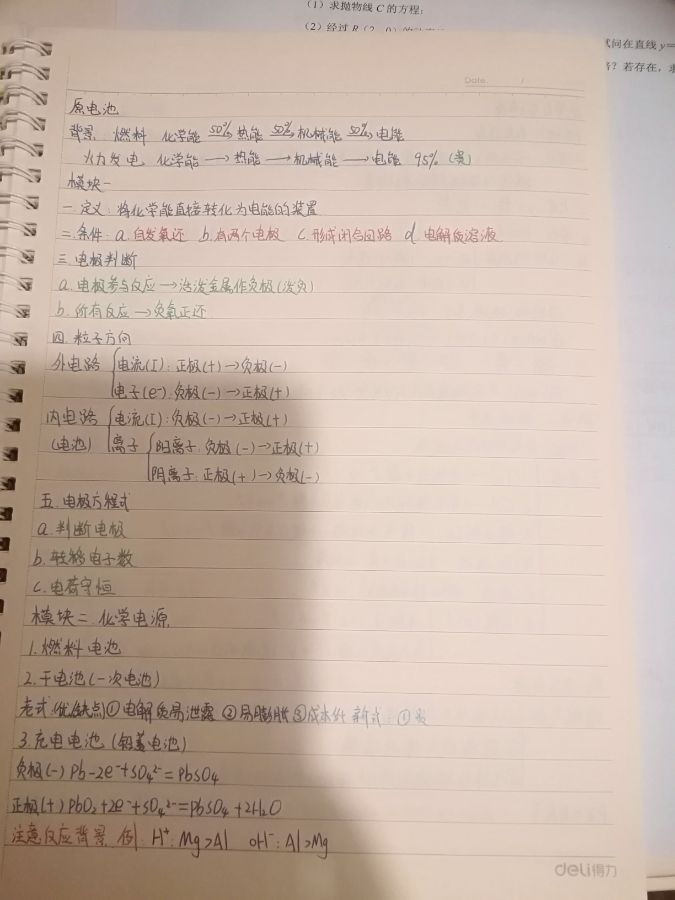 (1) 求抛物线 C 的方程;
(2) 经过
试问在直线 y=
若存在, 求
Date. /
原电池
背景: 燃料 化学能 50%→ 热能 50%→ 机械能 50%→ 电能
火力发电 化学能 → 热能 → 机械能 → 电能 95% (贵)
模块一
一 定义: 将化学能直接转化为电能的装置
二.条件: a.自发氧还 b.有两个电极 c.形成闭合回路 d.电解质溶液
三.电极判断
a.电极参与反应→活泼金属作负极(泼负)
b.所有反应→负氧正还
四.粒子方向
外电路 { 电流(I): 正极(+)→负极(-)
电子(e⁻): 负极(-)→正极(+)
内电路 { 电流(I): 负极(-)→正极(+)
(电池) 离子 { 阳离子: 负极(-)→正极(+)
阴离子: 正极(+)→负极(-)
五.电极方程式
a.判断电极
b.转移电子数
c.电荷守恒
模块二 化学电源
1.燃料电池
2.干电池(一次电池)
老式 (优缺点)①电解质易泄露 ②易膨胀 ③成本低 新式: ①
3.充电电池 (铅蓄电池)
负极(-) Pb-2e⁻+SO₄²⁻=PbSO₄
正极(+) PbO₂+2e⁻+SO₄²⁻=PbSO₄+2H₂O
注意反应背景 例: H⁺: Mg>Al OH⁻: Al>Mg
deli得力